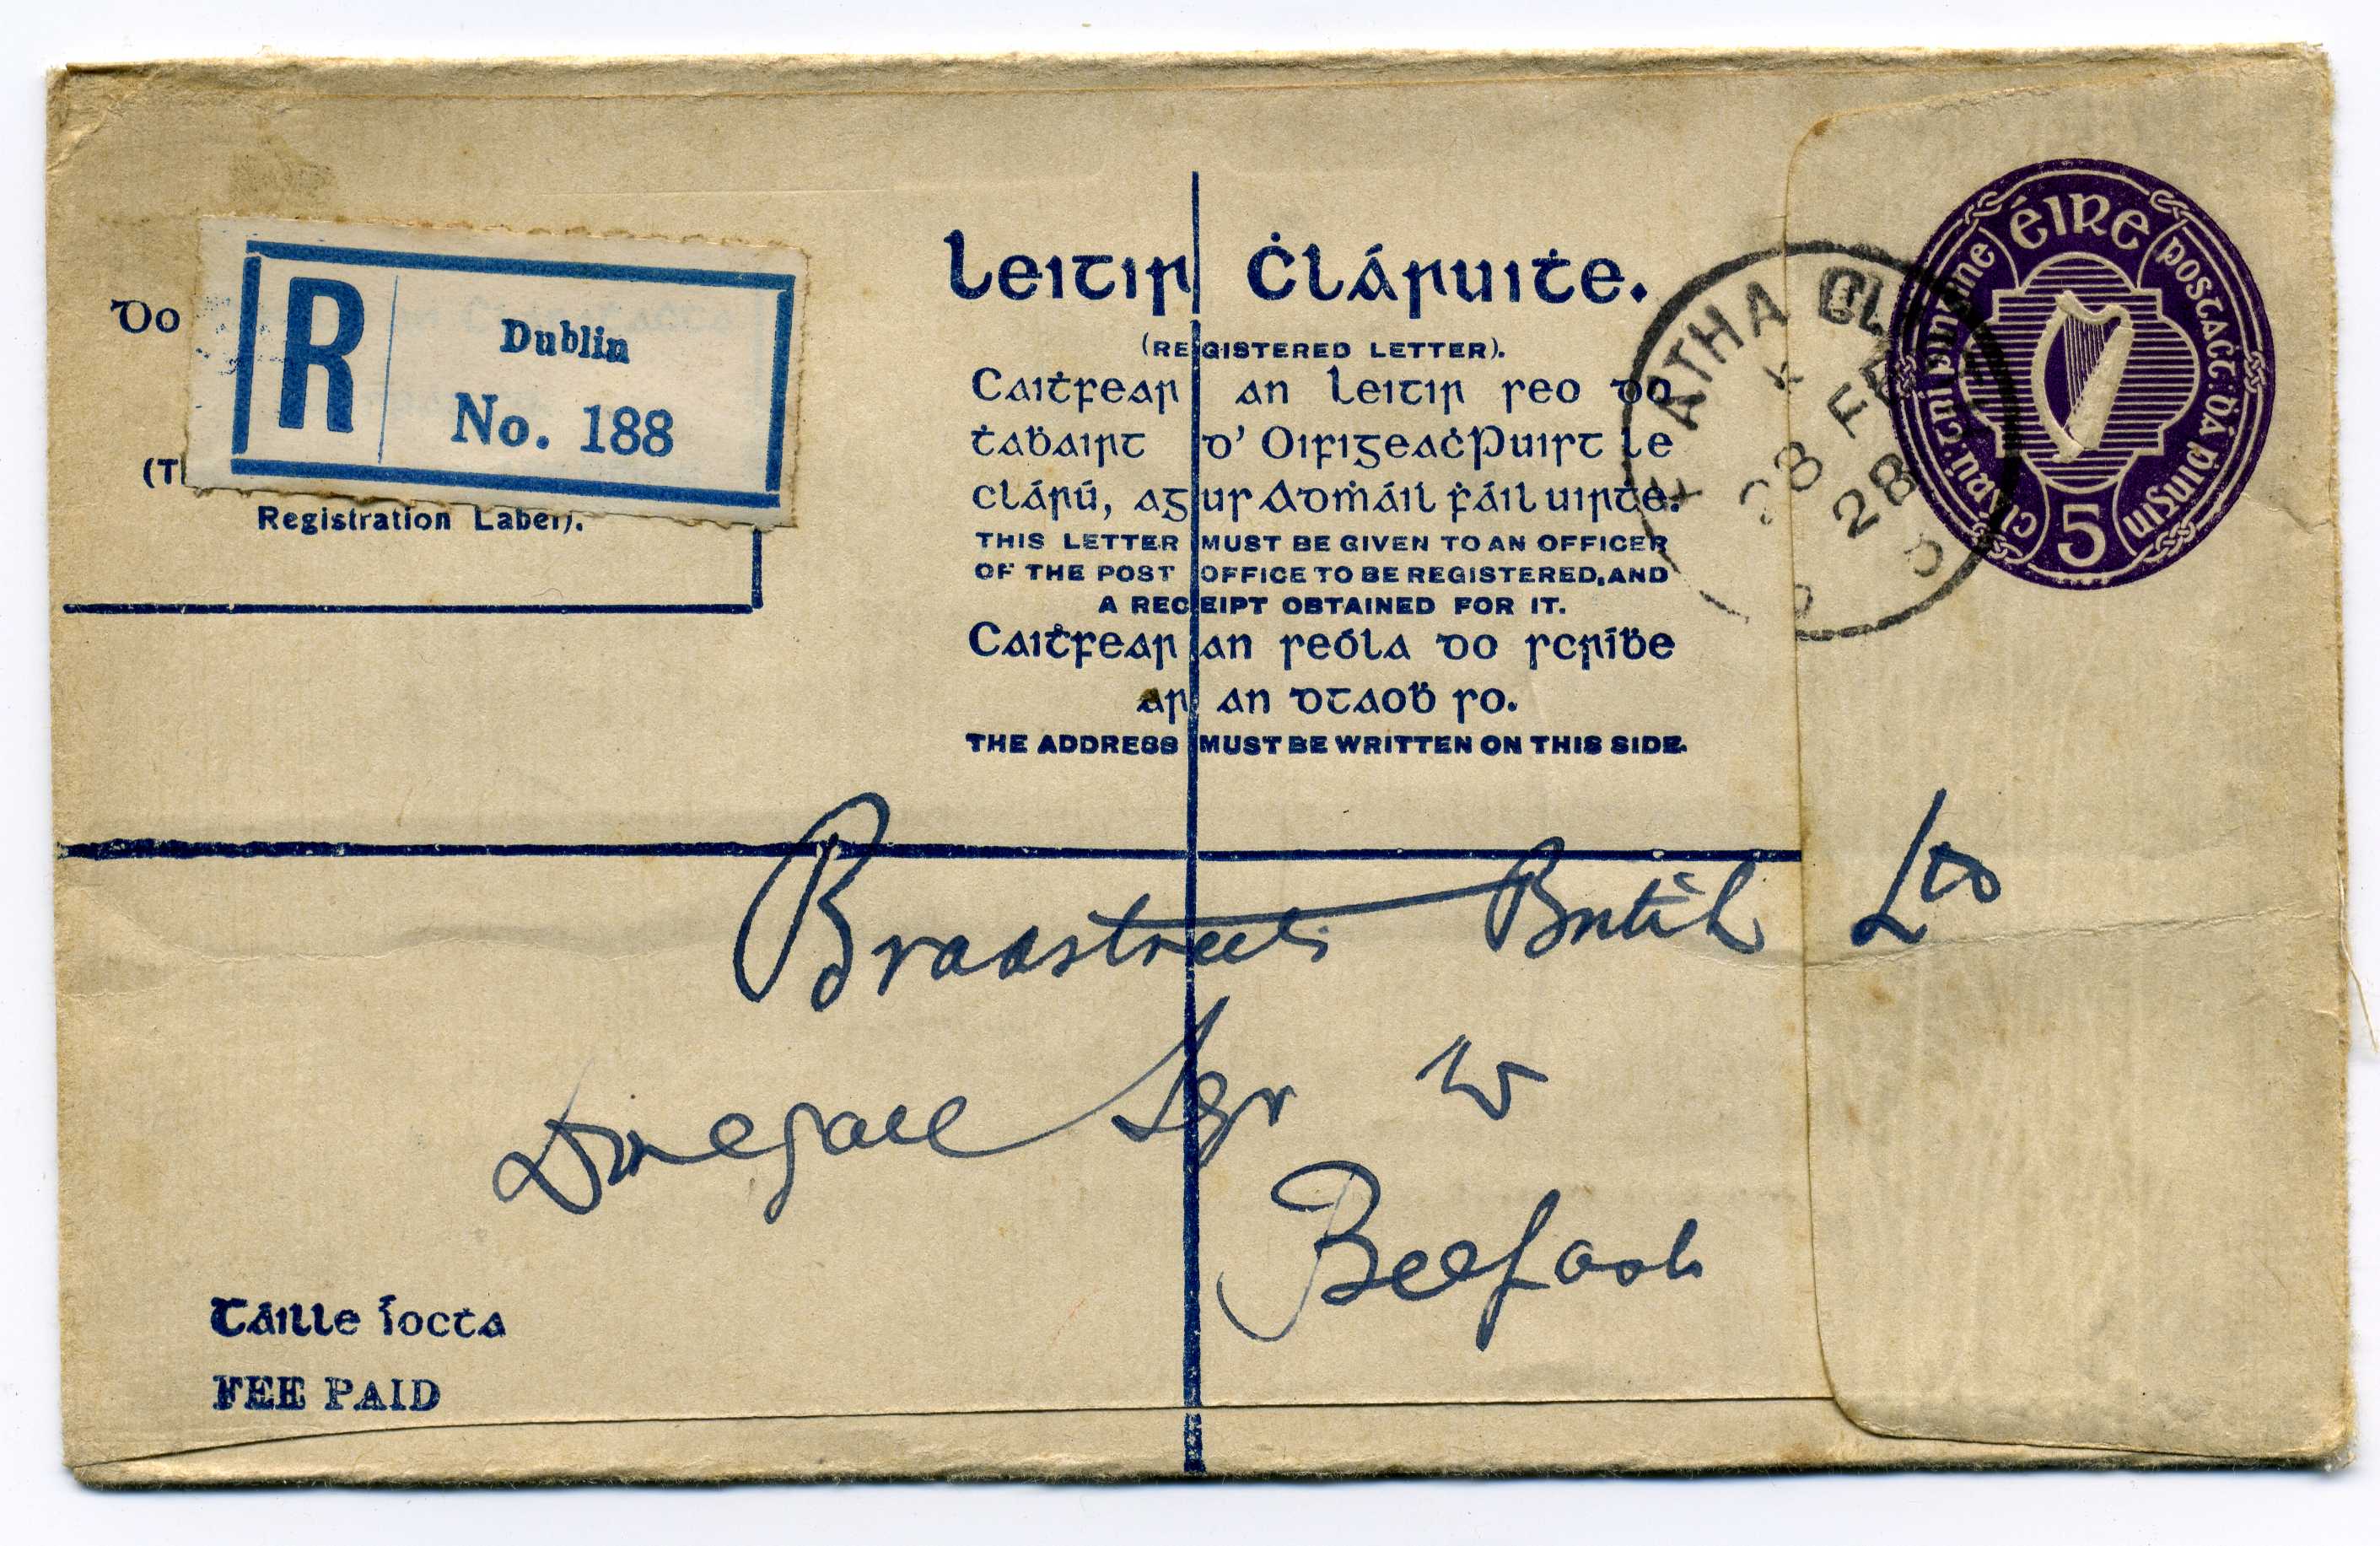 Do
R Dublin
No. 188
(T
Registration Label).
Leitir Ċláruiṫe.
(REGISTERED LETTER).
Caiṫfear an leitir seo do
ṫaḃairt d' OifigeaċPuist le
clárú, agus Admáil ḟáil uirṫe.
THIS LETTER MUST BE GIVEN TO AN OFFICER
OF THE POST OFFICE TO BE REGISTERED, AND
A RECEIPT OBTAINED FOR IT.
Caiṫfear an seóla do scríḃe
ar an dtaoḃ so.
THE ADDRESS MUST BE WRITTEN ON THIS SIDE.
ÁTHA CL
28 FE
28
éire
postaċt: dá ṗingin
clárú: trí pingine
5
Bradstreets British Ltd
Donegall Sqr W
Belfast
Táille íocṫa
FEE PAID